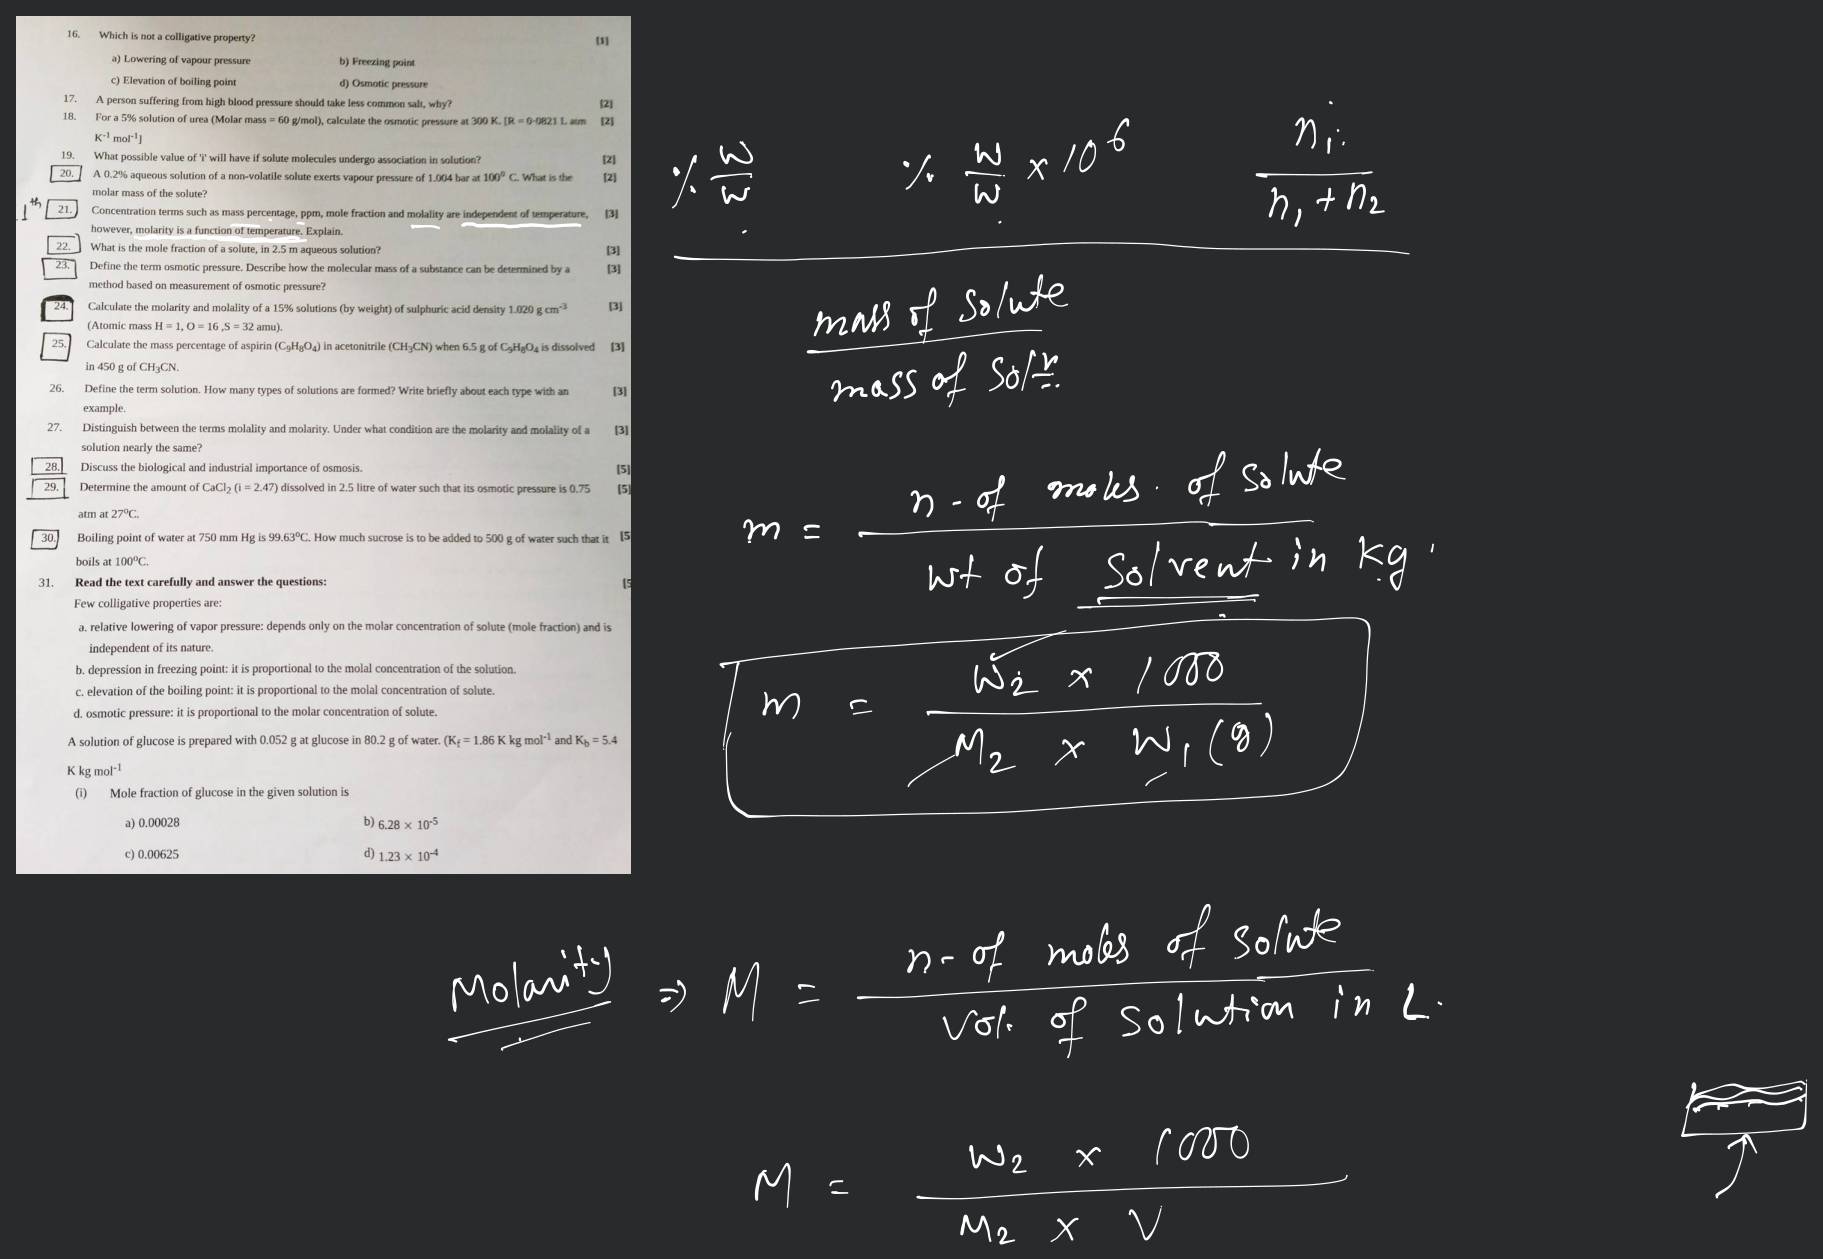 16. Which is not a colligative property? [1]
a) Lowering of vapour pressure b) Freezing point
c) Elevation of boiling point d) Osmotic pressure
17. A person suffering from high blood pressure should take less common salt, why? [2]
18. For a 5% solution of urea (Molar mass = 60 g/mol), calculate the osmotic pressure at 300 K. [R = 0·0821 L atm [2]
K⁻¹ mol⁻¹]
19. What possible value of 'i' will have if solute molecules undergo association in solution? [2]
20. A 0.2% aqueous solution of a non-volatile solute exerts vapour pressure of 1.004 bar at 100⁰ C. What is the [2]
molar mass of the solute?
21. Concentration terms such as mass percentage, ppm, mole fraction and molality are independent of temperature, [3]
however, molarity is a function of temperature. Explain.
22. What is the mole fraction of a solute, in 2.5 m aqueous solution? [3]
23. Define the term osmotic pressure. Describe how the molecular mass of a substance can be determined by a [3]
method based on measurement of osmotic pressure?
24. Calculate the molarity and molality of a 15% solutions (by weight) of sulphuric acid density 1.020 g cm⁻³ [3]
(Atomic mass H = 1, O = 16 ,S = 32 amu).
25. Calculate the mass percentage of aspirin (C₉H₈O₄) in acetonitrile (CH₃CN) when 6.5 g of C₉H₈O₄ is dissolved [3]
in 450 g of CH₃CN.
26. Define the term solution. How many types of solutions are formed? Write briefly about each type with an [3]
example.
27. Distinguish between the terms molality and molarity. Under what condition are the molarity and molality of a [3]
solution nearly the same?
28. Discuss the biological and industrial importance of osmosis. [5]
29. Determine the amount of CaCl₂ (i = 2.47) dissolved in 2.5 litre of water such that its osmotic pressure is 0.75 [5]
atm at 27⁰C.
30. Boiling point of water at 750 mm Hg is 99.63⁰C. How much sucrose is to be added to 500 g of water such that it [5
boils at 100⁰C.
31. Read the text carefully and answer the questions: [5
Few colligative properties are:
a. relative lowering of vapor pressure: depends only on the molar concentration of solute (mole fraction) and is
independent of its nature.
b. depression in freezing point: it is proportional to the molal concentration of the solution.
c. elevation of the boiling point: it is proportional to the molal concentration of solute.
d. osmotic pressure: it is proportional to the molar concentration of solute.
A solution of glucose is prepared with 0.052 g at glucose in 80.2 g of water. (Kf = 1.86 K kg mol⁻¹ and Kb = 5.4
K kg mol⁻¹
(i) Mole fraction of glucose in the given solution is
a) 0.00028 b) 6.28 × 10⁻⁵
c) 0.00625 d) 1.23 × 10⁻⁴
% w/w % w/w × 10⁶ n₁/n₁ + n₂
mass of solute
mass of solⁿ.
m = n- of moles. of solute
wt of solvent in kg.
m = W₂ × 1000
M₂ × W₁ (g)
Molarity ⇒ M = n- of moles of solute
Vol. of solution in L.
M = W₂ × 1000
M₂ × V